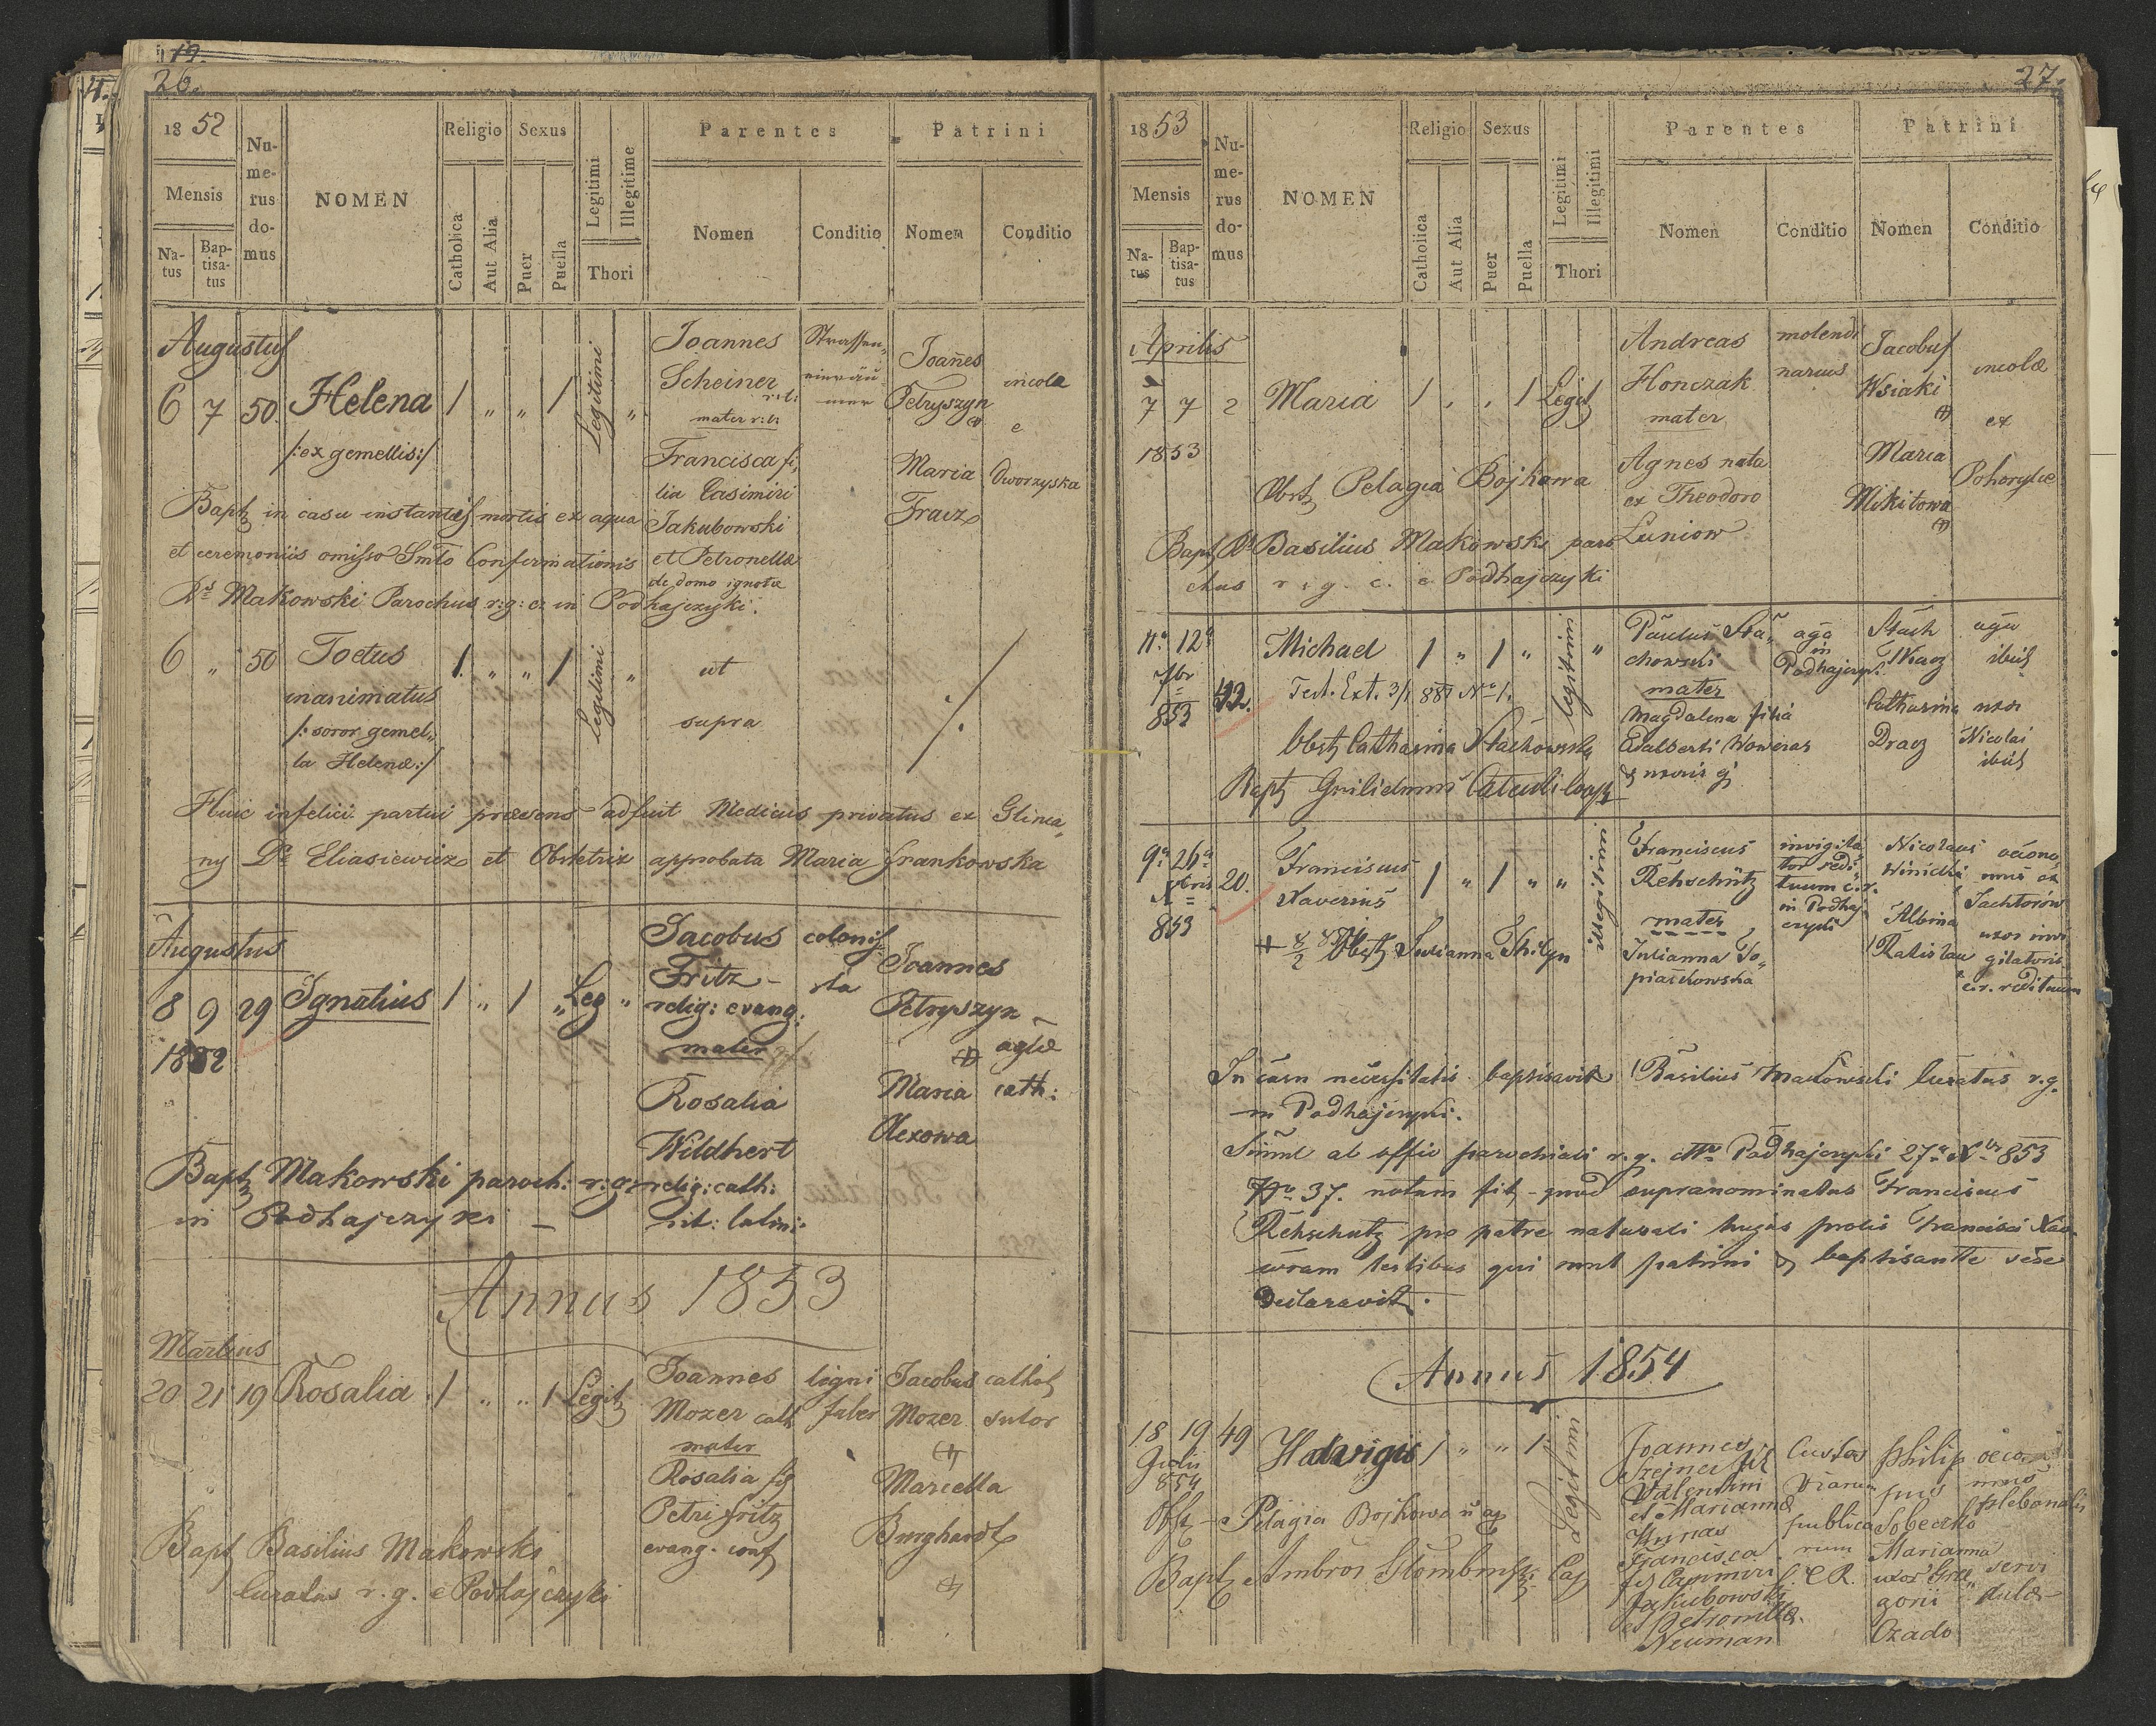 19.
26.
1852
Mensis
Na-
tus
Bap-
tisa-
tus
Nu-
me-
rus
do-
mus
NOMEN
Religio
Catholica
Aut Alia
Sexus
Puer
Puella
Legitimi
Illegitime
Thori
Parentes
Nomen
Conditio
Patrini
Nomen
Conditio
Augustus
6 7 50. Helena 1 " " 1 Legitimi "
/:ex gemellis:/
Joannes
Scheiner
r: l:
mater r: l:
Francisca fi,
lia Casimiri
Jakubowski
et Petronellæ
de domo ignotæ
Strassen,
einräu
mer
Joañes
Petryszyn
Maria
Fracz
incolæ
e
Dworzyska
Bapt in casu instantis mortis ex aqua
et ceremoniis omisso Smto Confirmationis
Rs Makowski Parochus r: g: c: in Podhajczyki.
6 " 50 Foetus 1. " " 1 Legitimi "
inanimatus
/: soror gemel,,
la Helenæ:/
ut
supra
Huic infelici partui præsens adfuit Medicus privatus ex Glinia,
ny Ds Eliasiewicz et Obstetrix approbata Maria Frankowska
Augustus
8 9 29 Ignatius 1 " 1 " Leg "
1852
Jacobus
Fritz -
relig: evang:
mater
Rosalia
Wildhert
relig: cath:
rit: latini:
colonis
sta
Joannes
Petryszyn
Maria
Olexowa
aglæ
cath:
Bapt Makowski paroch: r: g:
in Podhajczyki -
Annus 1853
Martius
20 21 19 Rosalia 1 " " 1 Legit
Joannes
Mozer cath
mater
Rosalia fig
Petri Fritz
evang. conf
ligni
faber
Jacobus
Mozer
Marcella
Burghardt
cathol
sutor
Bapt Basilius Makowski
Curatus r. g. e Podhajczyki
27.
1853
Mensis
Na-
tus
Bap-
tisa-
tus
Nu-
me-
rus
do-
mus
NOMEN
Religio
Catholica
Aut Alia
Sexus
Puer
Puella
Legitimi
Illegitimi
Thori
Parentes
Nomen
Conditio
Patrini
Nomen
Conditio
Aprilis
7 7 2 Maria 1 , , 1 Legit
1853
Andreas
Honczak
mater
Agnes nata
ex Theodoro
Luniow
molendi
narius
Jacobus
Wsiaki
Maria
Mikitowa
incolæ
ex
Pohorylce
Obst Pelagia Bojkowa
Bapt Rs Basilius Makowski paro
chus r. g. c. e Podhajczyki
11a 12a
7br
853
42. Michael 1 " 1 " legitimi "
Test. Ext. 3/1 881 No 1.
Paulus Sta,,
chowski
mater
Magdalena filia
Adalberti Woweras
aga
in
Podhajczyki
Stach
Catharina
Dracz
aga
ibid
uxor
Nicolai
ibid
Obst Catharina Stachowska
9a 26a
Xbris
853
20. Franciscus 1 " 1 " " illegitimi
Xaverius
Franciscus
Rehschütz
mater
Julianna To,,
piaschowska
invigila
tor redi
tuum c. r.
in Podhaj
czyki
Nicolaus
Winicki
Albina
oecono,,
mus ex
uxor invi
gilatoris
c. r. redituum
In casu necessitatis baptisavit Basilius Makowski Curatus r. g.
in Podhajczyki.
Simul ab offio parochiali r. g. dtto Podhajczyki 27a Xbr 853
No 37. notum fit, quod supranominatus Franciscus
Rehschutz pro patre naturali hujus prolis Francisci Xav.
coram testibus qui sunt patrini & baptisante sese
declaravit.
Annus 1854
18 19 49 Hedvigis 1 " " 1 Legitimi
Julii
854
Joannes
Szejner fil
Valentini
et Mariannæ
Kunas
Francisca
fil Casimiri
Jakubowski
et Petronillæ
Neuman
Custos
viarum
publica
rum
C. R.
Philip
pus
Sobeczko
Marianna
uxor Gre,,
gorii
Ozado
oeco
mus
plebanalis
servi
aulæ
Obst - Pelagia Bojkowa
Bapt Ambros